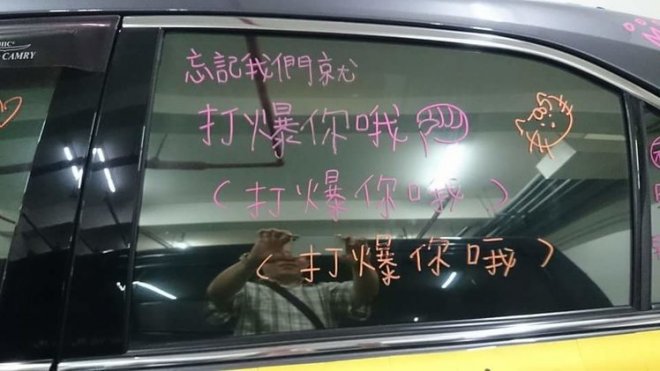 CAMRY
忘記我們就
打爆你哦
(打爆你哦)
(打爆你哦)